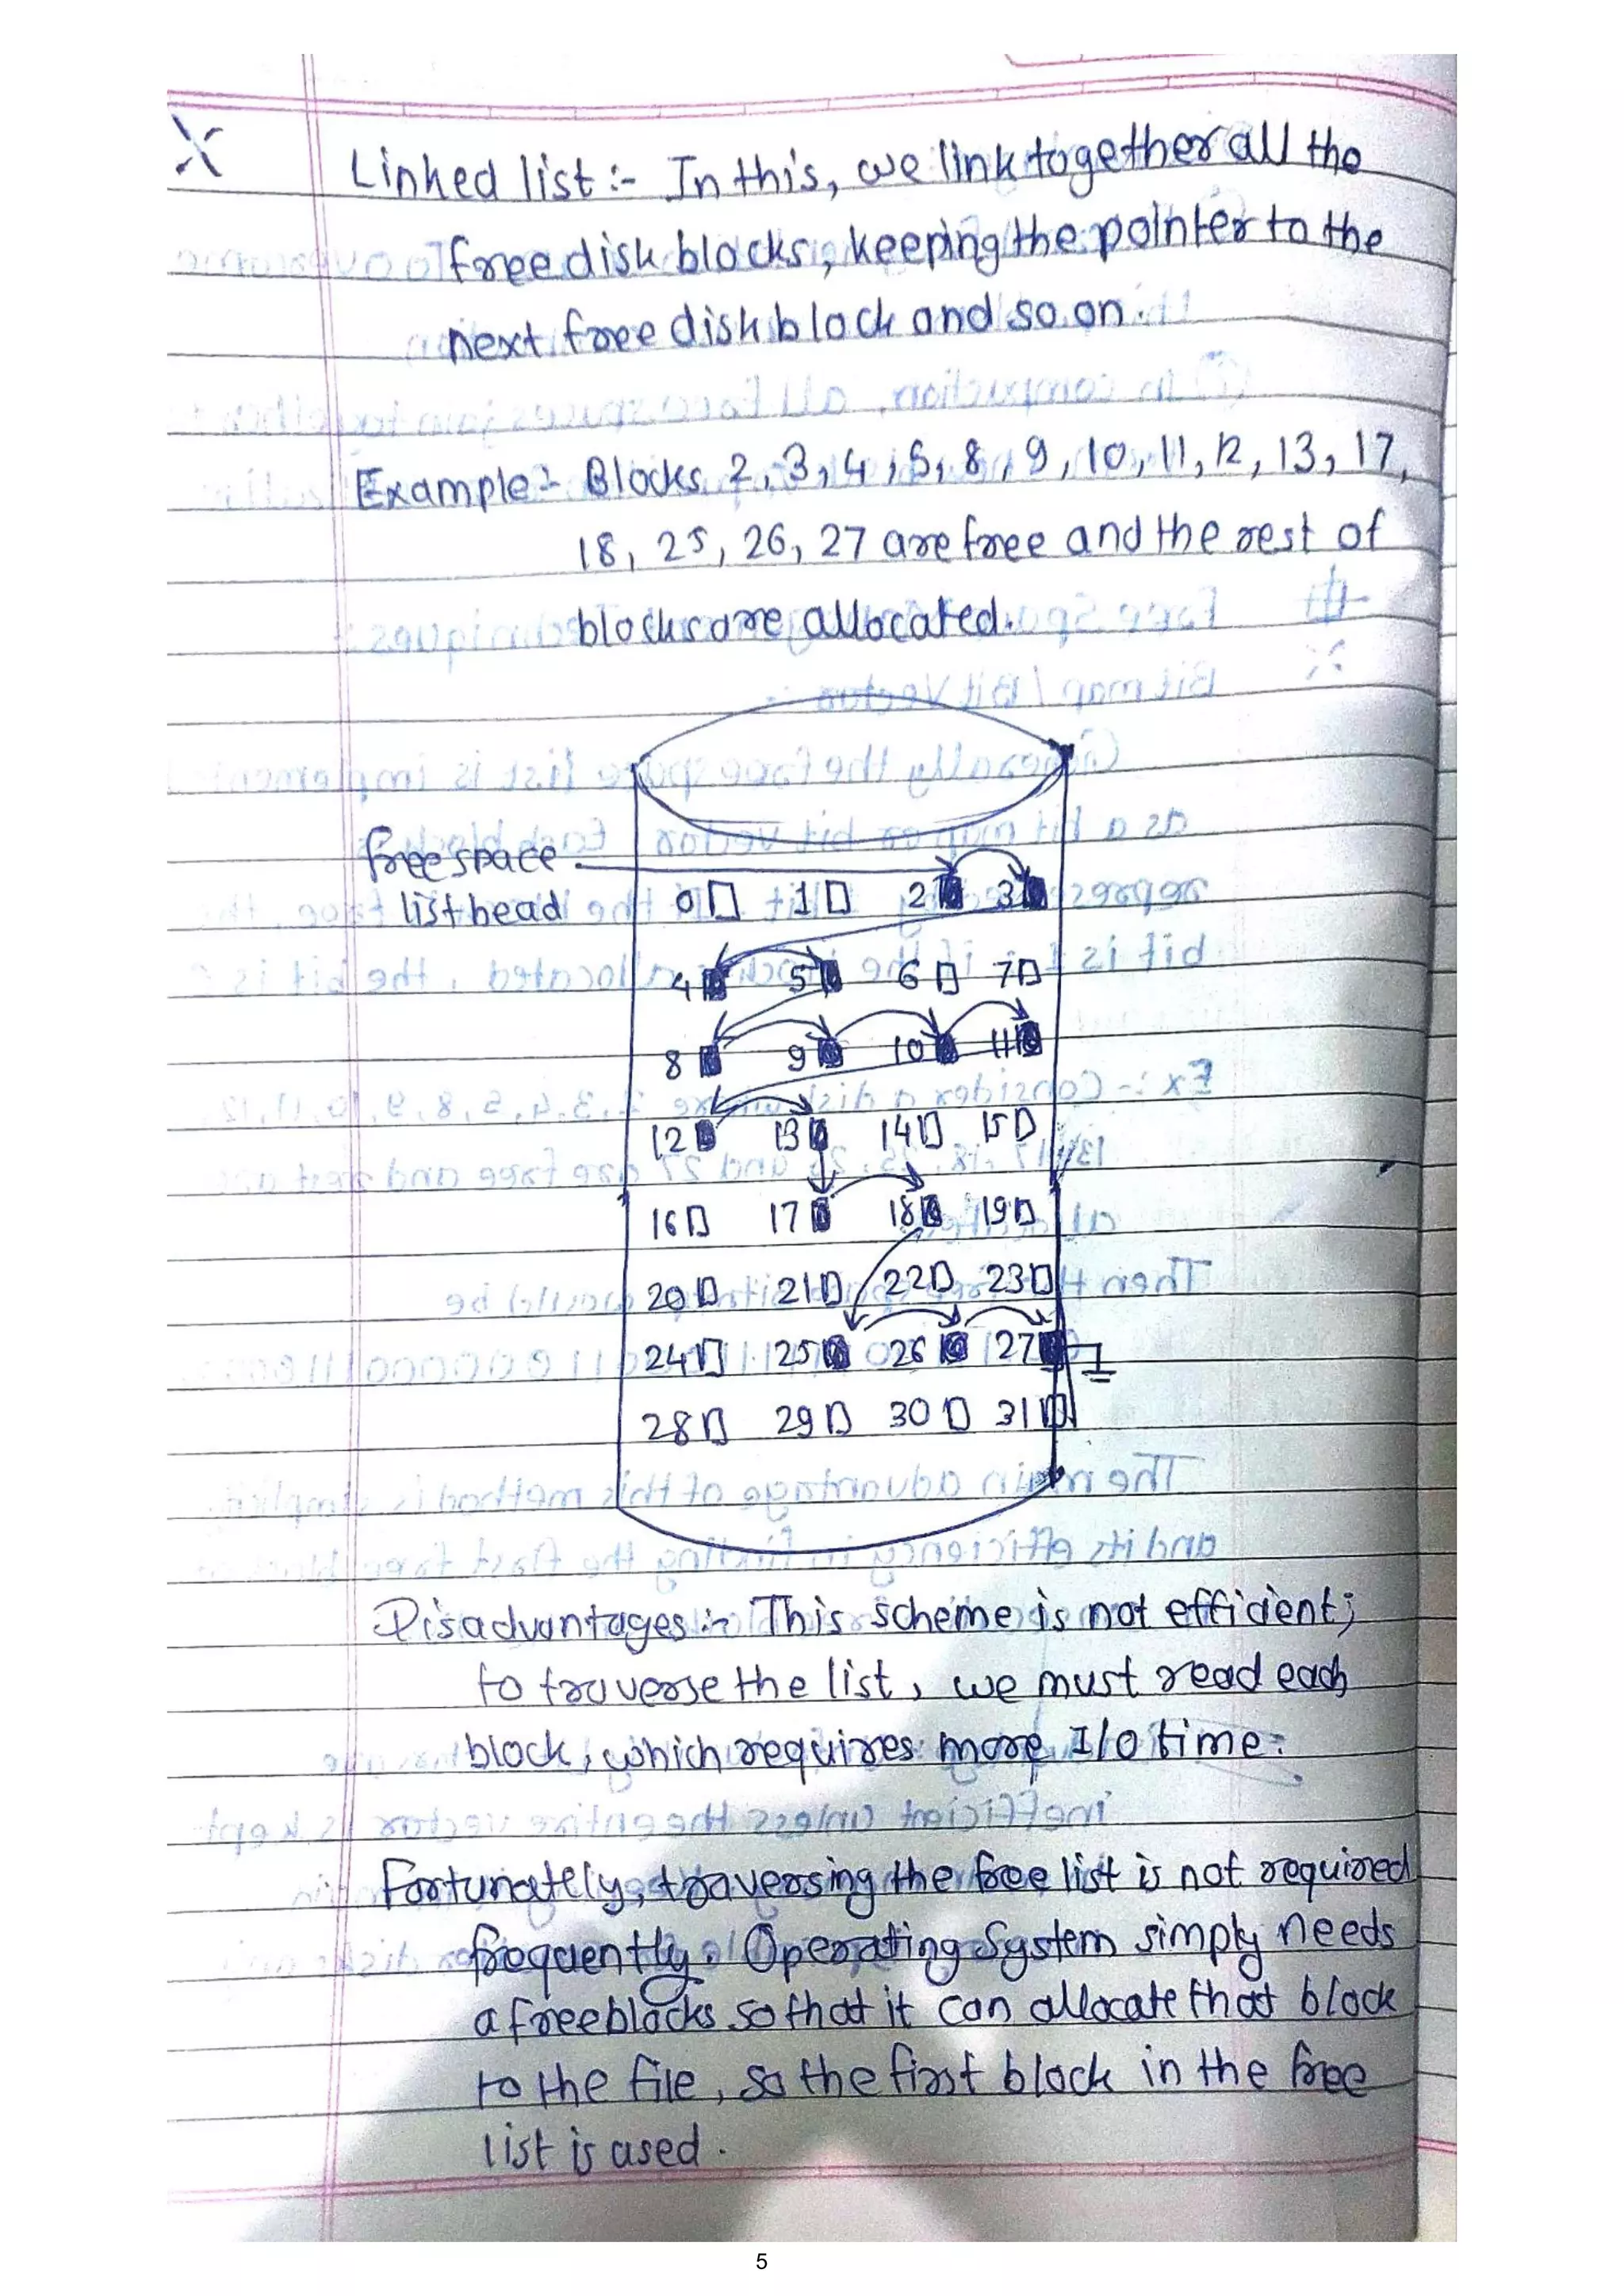 Linked list :- In this, we link together all the
free disk blocks, keeping the pointer to the
next free disk block and so on.
Example :- Blocks 2, 3, 4, 5, 8, 9, 10, 11, 12, 13, 17,
18, 25, 26, 27 are free and the rest of
blocks are allocated.
free space
list head
0 1 2 3
4 5 6 7
8 9 10 11
12 13 14 15
16 17 18 19
20 21 22 23
24 25 26 27
28 29 30 31
Disadvantages :- This scheme is not efficient;
to traverse the list, we must read each
block, which requires more I/O time.
Fortunately, traversing the free list is not required
frequently. Operating System simply needs
a free blocks so that it can allocate that block
to the file, so the first block in the free
list is used.
5